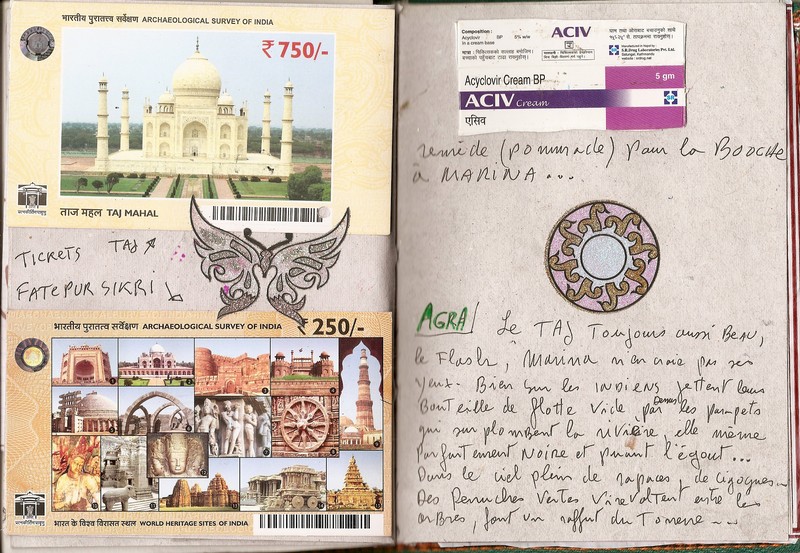 भारतीय पुरातत्त्व सर्वेक्षण ARCHAEOLOGICAL SURVEY OF INDIA
₹ 750/-
ताज महल TAJ MAHAL
TICKETS TAJ
FATEPUR SIKRI
भारतीय पुरातत्त्व सर्वेक्षण ARCHAEOLOGICAL SURVEY OF INDIA
₹ 250/-
भारत के विश्व विरासत स्थल WORLD HERITAGE SITES OF INDIA
Composition:
Acyclovir BP 5% w/w
in a cream base
ACIV
Acyclovir Cream BP
5 gm
ACIV Cream
एसिव
remède (pommade) pour la BOOCHE
à MARINA...
AGRA Le TAJ Toujours aussi Beau,
le Flash, Marina n'en croie pas ses
yeux. Bien sur les INDIENS jettent leurs
Bouteille de flotte vide par Dessus les parapets
qui surplombent la rivière, elle même
parfaitement Noire et puant l'égout...
Dans le ciel plein de rapaces, de cigognes...
Des Perruches Vertes Virevoltent entre les
arbres, font un raffut du Tonnerre...